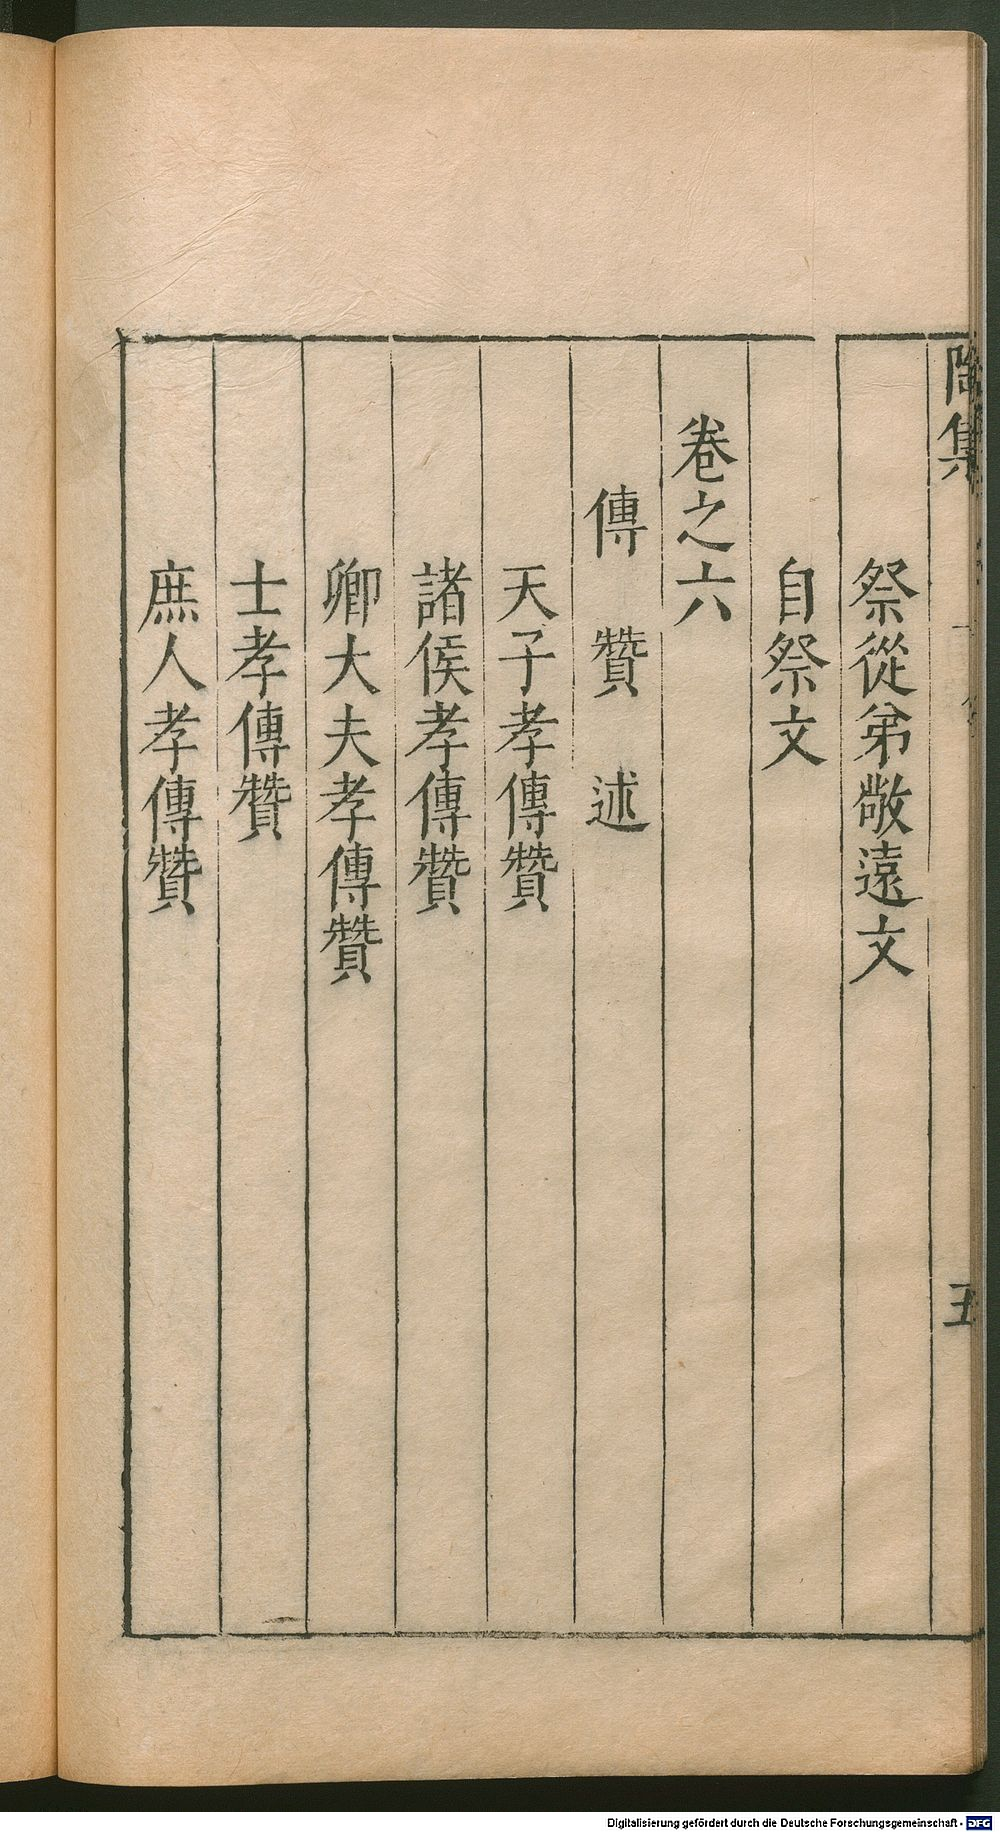 陶集
五
祭從弟敬遠文
自祭文
卷之六
傳 贊 述
天子孝傳贊
諸侯孝傳贊
卿大夫孝傳贊
士孝傳贊
庶人孝傳贊
Digitalisierung gefördert durch die Deutsche Forschungsgemeinschaft - DFG